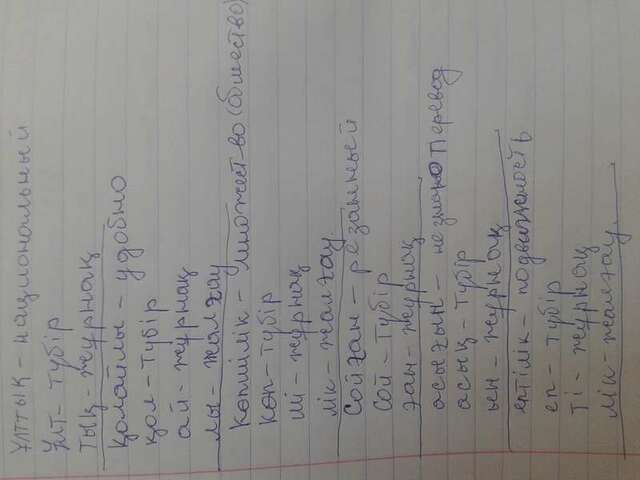 ұлттық - национальный
ұлт - түбір
тық - журнақ
қолайлы - удобно
қол - түбір
ай - журнақ
лы - жалғау
көпшілік - множество (общество)
көп - түбір
ші - журнақ
лік - жалғау.
Сойған - резанный
сой - түбір
ған - журнақ
асығын - не знаю перевод
асық - түбір
ын - журнақ
ептілік - подвижность
еп - түбір
ті - журнақ
лік - жалғау.